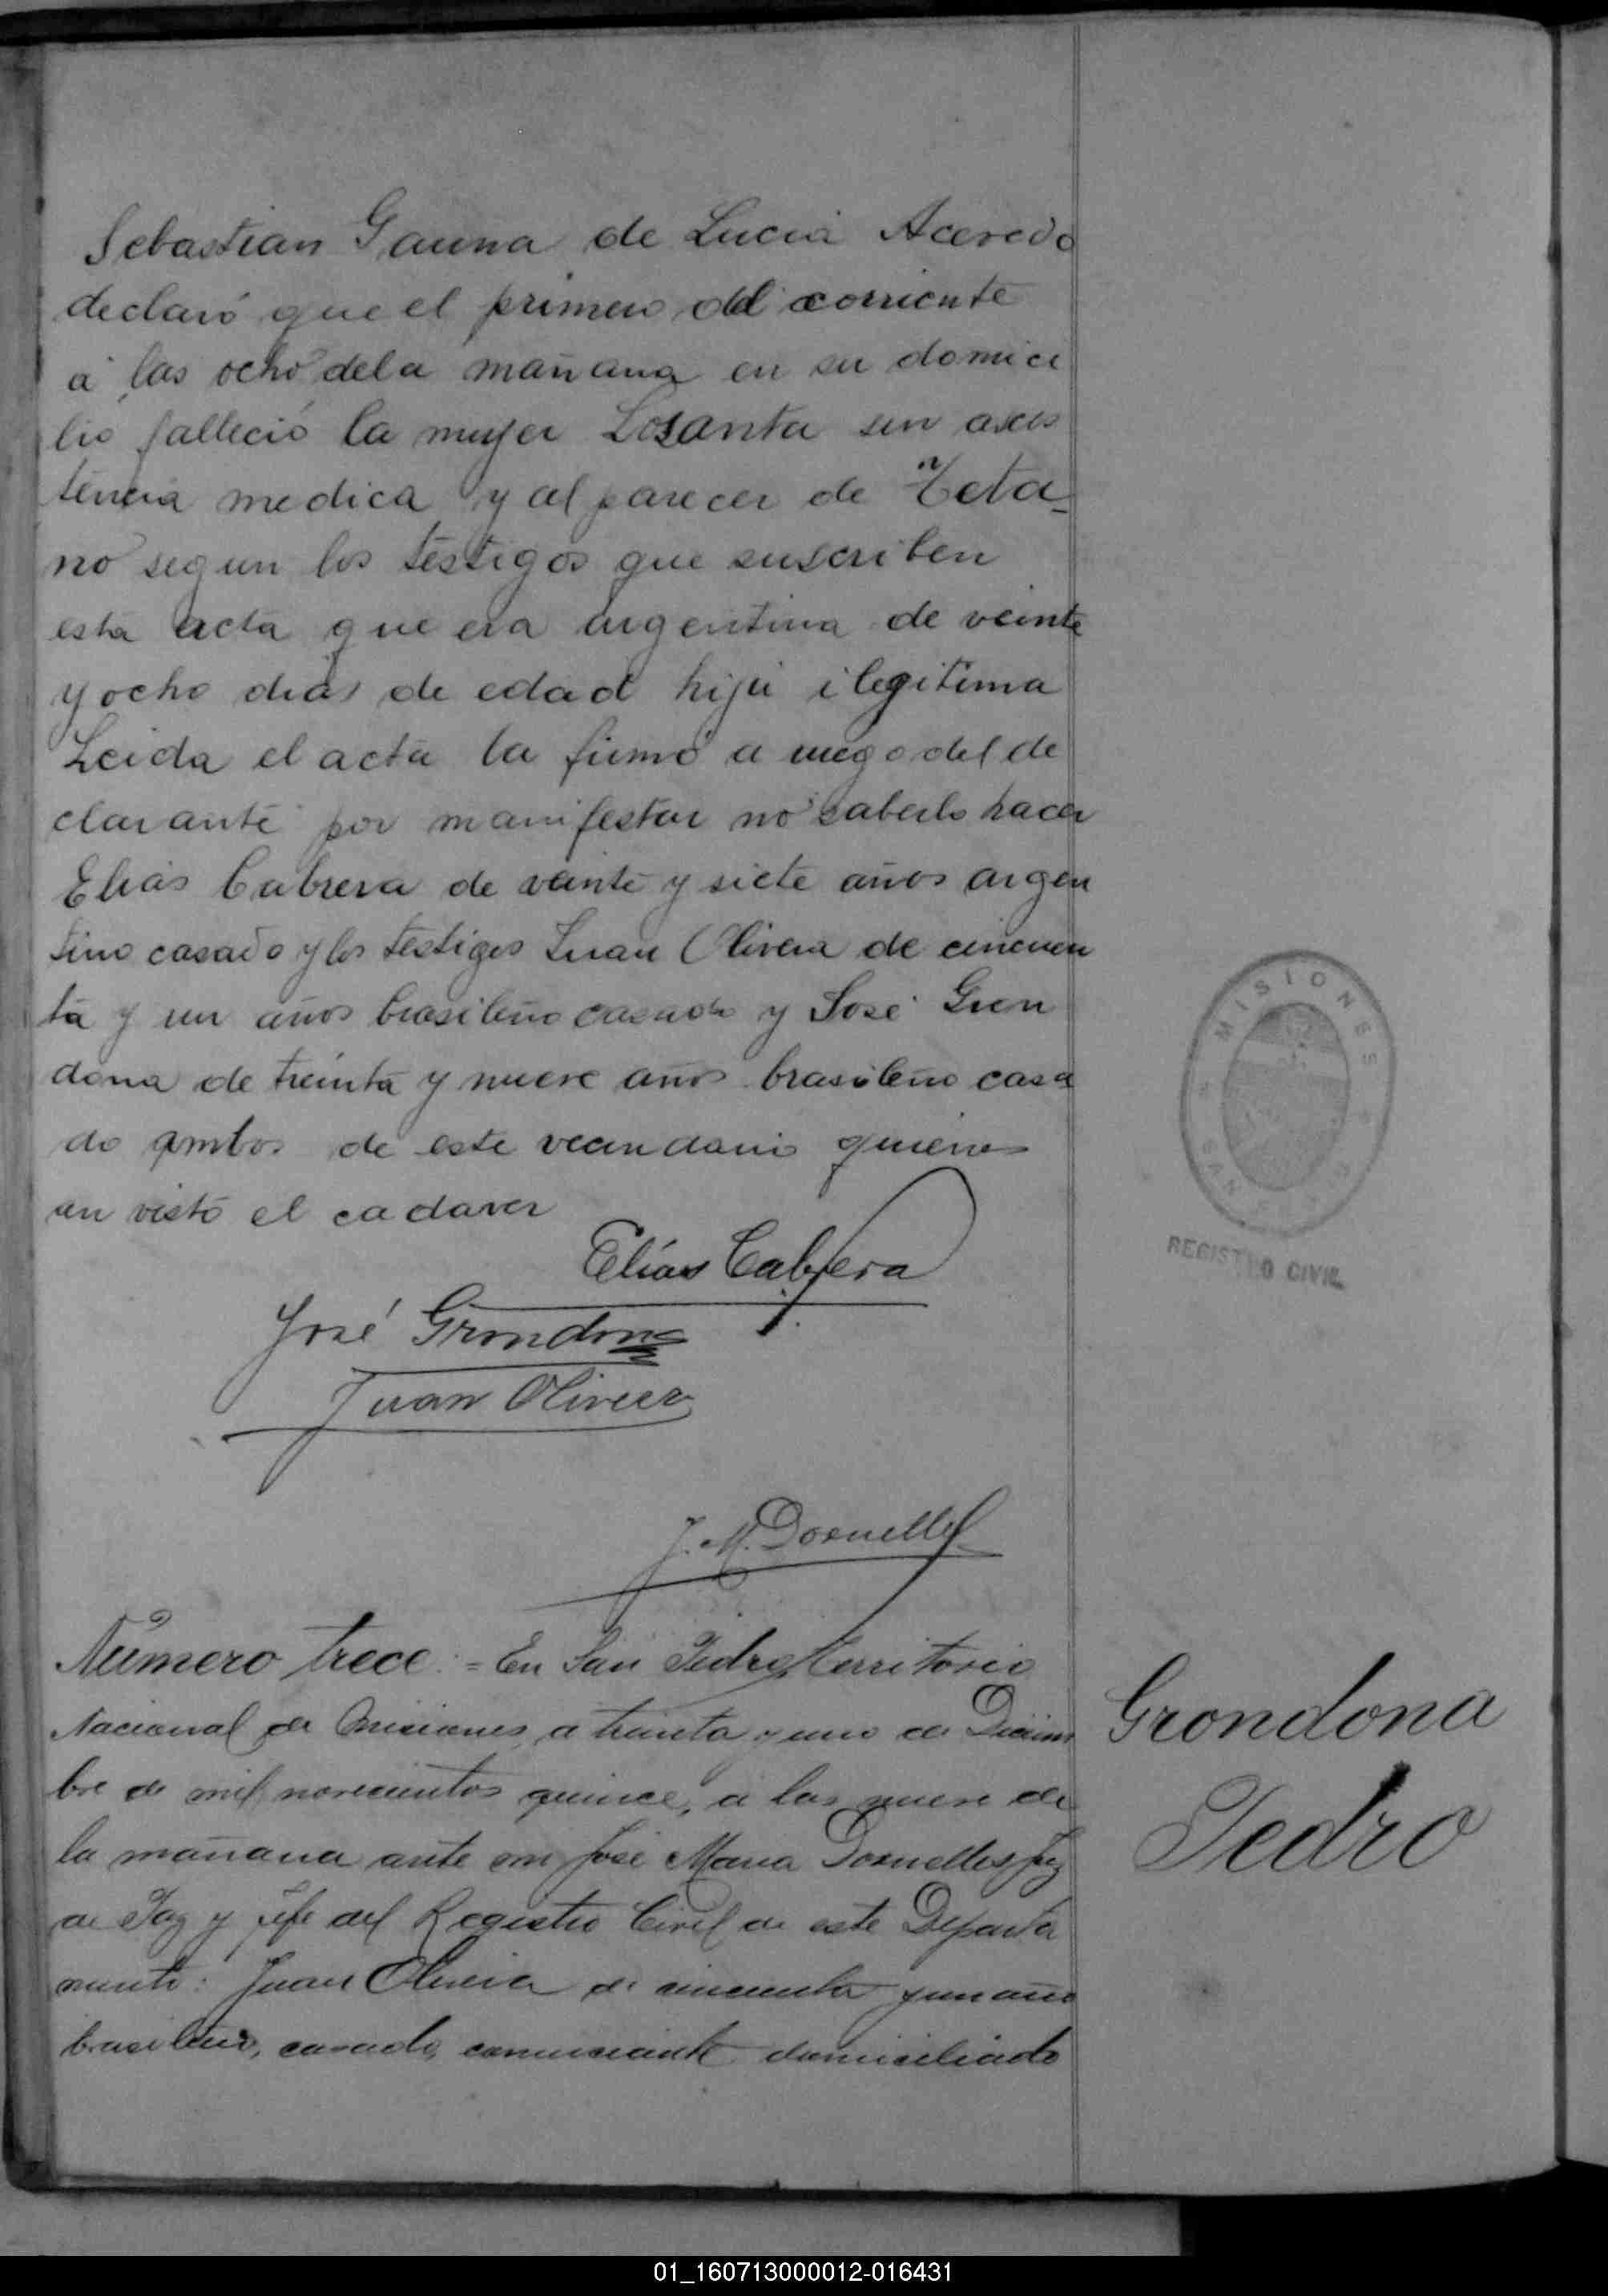 Sebastian Gauna de Lucia Acevedo
declaró que el primero del corriente
á las ocho dela mañana en su domici
lio falleció la mujer Losanta sin asis
tencia medica y al parecer de Teta-
no segun los testigos que suscriben
esta acta que era argentina de veinte
y ocho dias de edad hija ilegitima
Leida el acta la firmó a ruego del de
clarante por manifestar no saberlo hacer
Elias Cabrera de veinte y siete años argen
tino casado y los testigos Juan Olivera de cincuen
ta y un años brasileño casado y José Gron
dona de treinta y nueve años brasileño casa
do ambos de este vecindario quienes
an visto el cadaver
Elías Cabrera
José Grondona
Juan Olivera
J. M. Dornelles
Número trece:= En San Pedro, Territorio
Nacional de Misiones, a treinta y uno de Diciem
bre de mil novecientos quince, a las nueve de
la mañana ante mi José Maria Dornelles Juez
de Paz y Jefe del Registro Civil de este Departa
mento: Juan Olivera de cincuenta y un años
brasileño, casado, comerciante domiciliado
Grondona
Pedro
MISIONES
SAN
REGISTRO CIVIL
01_160713000012-016431